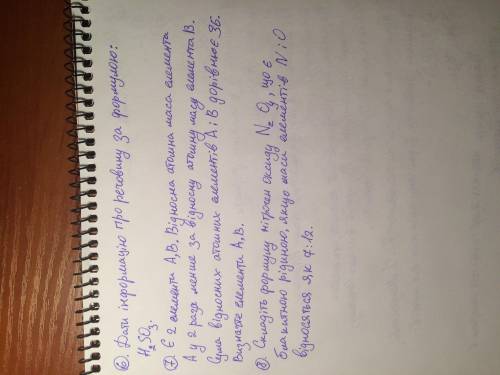 6. Дати інформацію про речовину за формулою:
H₂SO₃.
7. Є 2 елементи А, В. Відносна атомна маса елемента
А у 2 рази менше за відносну атомну масу елемента В.
Сума відносних атомних елементів А і В дорівнює 36.
Визначте елементи А, В.
8. Складіть формулу нітроген оксиду N₂ Oy, що є
блакитною рідиною, якщо маси елементів N i O
відносяться як 7:12.